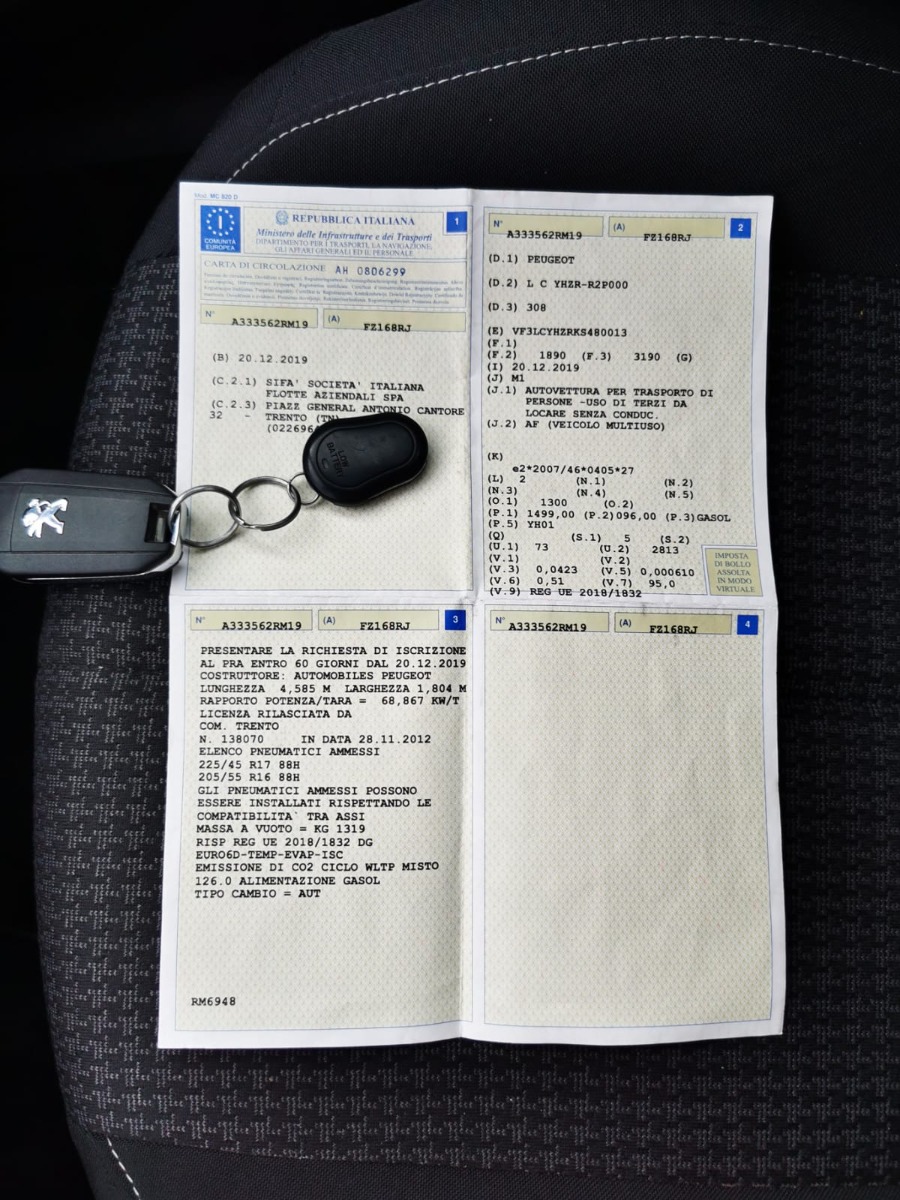 Mod. MC 820 D
COMUNITÀ
EUROPEA
REPUBBLICA ITALIANA
1
Ministero delle Infrastrutture e dei Trasporti
DIPARTIMENTO PER I TRASPORTI, LA NAVIGAZIONE,
GLI AFFARI GENERALI ED IL PERSONALE
CARTA DI CIRCOLAZIONE AH 0806299
N° A333562RM19 (A) FZ168RJ
(B) 20.12.2019
(C.2.1) SIFA' SOCIETA' ITALIANA
FLOTTE AZIENDALI SPA
(C.2.3) PIAZZ GENERAL ANTONIO CANTORE
32 - TRENTO (TN)
(022696
LOW
BATTERY
N° A333562RM19 (A) FZ168RJ 2
(D.1) PEUGEOT
(D.2) L C YHZR-R2P000
(D.3) 308
(E) VF3LCYHZRKS480013
(F.1)
(F.2) 1890 (F.3) 3190 (G)
(I) 20.12.2019
(J) M1
(J.1) AUTOVETTURA PER TRASPORTO DI
PERSONE -USO DI TERZI DA
LOCARE SENZA CONDUC.
(J.2) AF (VEICOLO MULTIUSO)
(K)
e2*2007/46*0405*27
(L) 2 (N.1) (N.2)
(N.3) (N.4) (N.5)
(O.1) 1300 (O.2)
(P.1) 1499,00 (P.2)096,00 (P.3)GASOL
(P.5) YH01
(Q) (S.1) 5 (S.2)
(U.1) 73 (U.2) 2813
(V.1) (V.2)
(V.3) 0,0423 (V.5) 0,000610
(V.6) 0,51 (V.7) 95,0
(V.9) REG UE 2018/1832
IMPOSTA
DI BOLLO
ASSOLTA
IN MODO
VIRTUALE
N° A333562RM19 (A) FZ168RJ 3
PRESENTARE LA RICHIESTA DI ISCRIZIONE
AL PRA ENTRO 60 GIORNI DAL 20.12.2019
COSTRUTTORE: AUTOMOBILES PEUGEOT
LUNGHEZZA 4,585 M LARGHEZZA 1,804 M
RAPPORTO POTENZA/TARA = 68,867 KW/T
LICENZA RILASCIATA DA
COM. TRENTO
N. 138070 IN DATA 28.11.2012
ELENCO PNEUMATICI AMMESSI
225/45 R17 88H
205/55 R16 88H
GLI PNEUMATICI AMMESSI POSSONO
ESSERE INSTALLATI RISPETTANDO LE
COMPATIBILITA` TRA ASSI
MASSA A VUOTO = KG 1319
RISP REG UE 2018/1832 DG
EURO6D-TEMP-EVAP-ISC
EMISSIONE DI CO2 CICLO WLTP MISTO
126.0 ALIMENTAZIONE GASOL
TIPO CAMBIO = AUT
RM6948
N° A333562RM19 (A) FZ168RJ 4